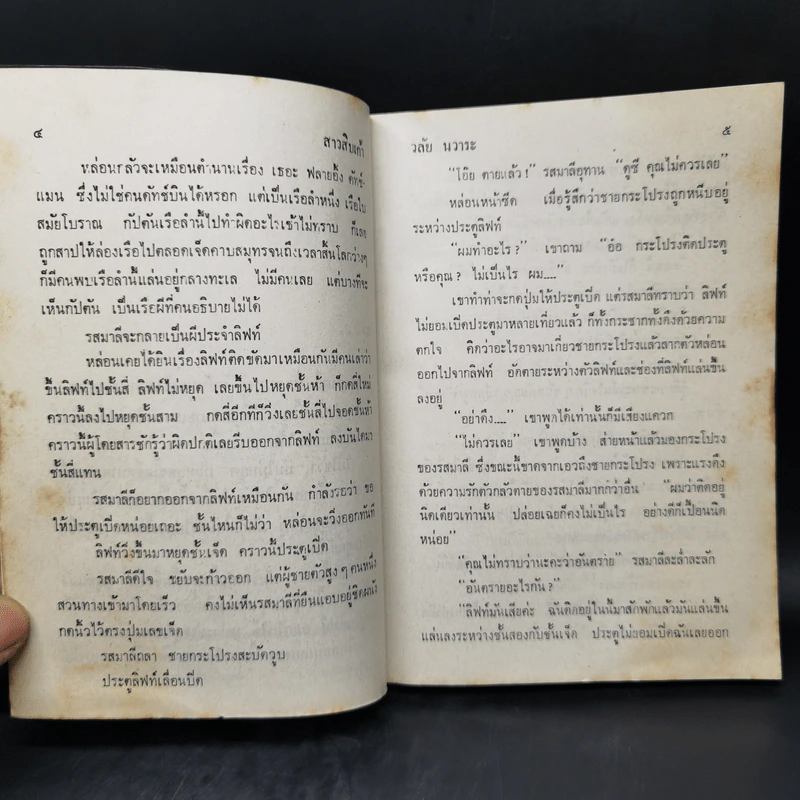 ๔
สาวสิบเก้า
หล่อนกลัวจะเหมือนตำนานเรื่อง เธอะ ฟลายอิ้ง ดัทช์-
แมน ซึ่งไม่ใช่คนดัทช์บินได้หรอก แต่เป็นเรือลำหนึ่ง เรือใบ
สมัยโบราณ กัปตันเรือลำนี้ไปทำผิดอะไรเข้าไม่ทราบ ก็เลย
ถูกสาปให้ล่องเรือไปตลอดเจ็ดคาบสมุทรจนถึงเวลาสิ้นโลกว่างๆ
ก็มีคนพบเรือลำนี้แล่นอยู่กลางทะเล ไม่มีคนเลย แต่บางทีจะ
เห็นกัปตัน เป็นเรือผีที่คนอธิบายไม่ได้
รสมาลีจะกลายเป็นผีประจำลิฟท์
หล่อนเคยได้ยินเรื่องลิฟท์ติดขัดมาเหมือนกันมีคนเล่าว่า
ขึ้นลิฟท์ไปชั้นสี่ ลิฟท์ไม่หยุด เลยขึ้นไปหยุดชั้นห้า ก็กดสี่ใหม่
คราวนี้ลงไปหยุดชั้นสาม กดสี่อีกทีก็วิ่งเลยชั้นสี่ไปจอดชั้นห้า
คราวนี้ผู้โดยสารชักรู้ว่าผิดปกติเลยรีบออกจากลิฟท์ ลงบันไดมา
ชั้นสี่แทน
รสมาลีก็อยากออกจากลิฟท์เหมือนกัน กำลังรอว่า ขอ
ให้ประตูเปิดหน่อยเถอะ ชั้นไหนก็ไม่ว่า หล่อนจะวิ่งออกทันที
ลิฟท์วิ่งขึ้นมาหยุดชั้นเจ็ด คราวนี้ประตูเปิด
รสมาลีดีใจ ขยับจะก้าวออก แต่ผู้ชายตัวสูงๆ คนหนึ่ง
สวนทางเข้ามาโดยเร็ว คงไม่เห็นรสมาลีที่ยืนแอบอยู่ชิดผนัง
กดนิ้วไว้ตรงปุ่มเลขเจ็ด
รสมาลีถลา ชายกระโปรงสะบัดวูบ
ประตูลิฟท์เลื่อนปิด
วลัย นวาระ
๕
“โอ๊ย ตายแล้ว !” รสมาลีอุทาน “ดูซี คุณไม่ควรเลย”
หล่อนหน้าซีด เมื่อรู้สึกว่าชายกระโปรงถูกหนีบอยู่
ระหว่างประตูลิฟท์
“ผมทำอะไร ?” เขาถาม “อ้อ กระโปรงติดประตู
หรือคุณ ? ไม่เป็นไร ผม....”
เขาทำท่าจะกดปุ่มให้ประตูเปิด แต่รสมาลีทราบว่า ลิฟท์
ไม่ยอมเปิดประตูมาหลายเที่ยวแล้ว ก็ทั้งกระชากทั้งดึงด้วยความ
ตกใจ คิดว่าอะไรอาจมาเกี่ยวชายกระโปรงแล้วลากตัวหล่อน
ออกไปจากลิฟท์ อัดตายระหว่างตัวลิฟท์และช่องที่ลิฟท์แล่นขึ้น
ลงอยู่
“อย่าดึง....” เขาพูดได้เท่านั้นก็มีเสียงแควก
“ไม่ควรเลย” เขาพูดบ้าง ส่ายหน้าแล้วมองกระโปรง
ของรสมาลี ซึ่งขณะนี้ขาดจากเอวถึงชายกระโปรง เพราะแรงดึง
ด้วยความรักตัวกลัวตายของรสมาลีมากกว่าอื่น “ผมว่าติดอยู่
นิดเดียวเท่านั้น ปล่อยเฉยก็คงไม่เป็นไร อย่างดีก็เปื้อนนิด
หน่อย”
“คุณไม่ทราบว่านะคะว่าอันตราย” รสมาลีละล่ำละลัก
“อันตรายอะไรกัน ?”
“ลิฟท์มันเสียค่ะ ฉันติดอยู่ในนี้มาสักพักแล้วมันแล่นขึ้น
แล่นลงระหว่างชั้นสองกับชั้นเจ็ด ประตูไม่ยอมเปิดฉันเลยออก